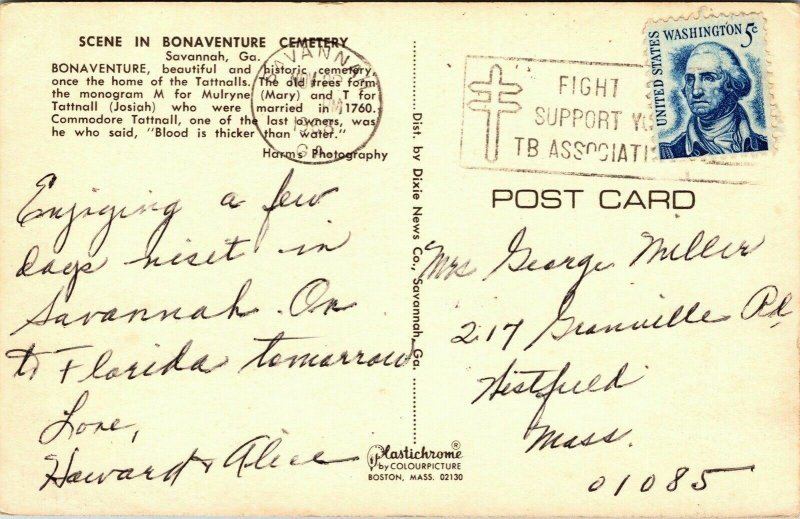 SCENE IN BONAVENTURE CEMETERY
Savannah, Ga.
BONAVENTURE, beautiful and historic cemetery,
once the home of the Tattnalls. The old trees form
the monogram M for Mulryne (Mary) and T for
Tattnall (Josiah) who were married in 1760.
Commodore Tattnall, one of the last owners, was
he who said, "Blood is thicker than water."
Harms Photography
SAVANNAH
GA
Enjoying a few
days in
Savannah. On
to Florida tomorrow
Love,
Howard & Alice
Dist. by Dixie News Co., Savannah, Ga.
Plastichrome®
by COLOURPICTURE
BOSTON, MASS. 02130
FIGHT
SUPPORT
TB ASSOCIATI
UNITED STATES
WASHINGTON 5c
POST CARD
Mrs George Miller
217 Granville Rd,
Westfield
Mass.
01085